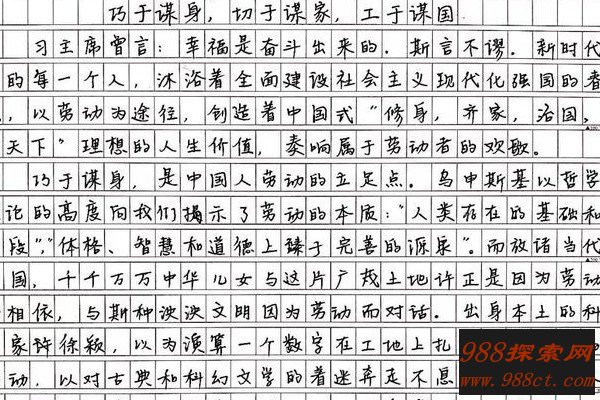 巧于谋身，切于谋家，工于谋国
习主席曾言：幸福是奋斗出来的．斯言不谬．新时代
的每一个人，沐浴着全面建设社会主义现代化强国的春
，以劳动为途径，创造着中国式“修身，齐家，治国，
天下”理想的人生价值，奏响属于劳动者的欢歌。
巧于谋身，是中国人劳动的立足点．乌申斯基以哲学
论的高度向我们揭示了劳动的本质：“人类存在的基础和
段”，“体格、智慧和道德上臻于完善的源泉”．而放诸当代
国，千千万万中华儿女与这片广茂土地许正是因为劳动
相依，与斯种泱泱文明因为劳动而对话．出身本土的科
家许徐颖，以为演算一个数字在工地上扎
动，以对古典和科幻文学的着迷奔走不息
988探索网
www.988ct.com